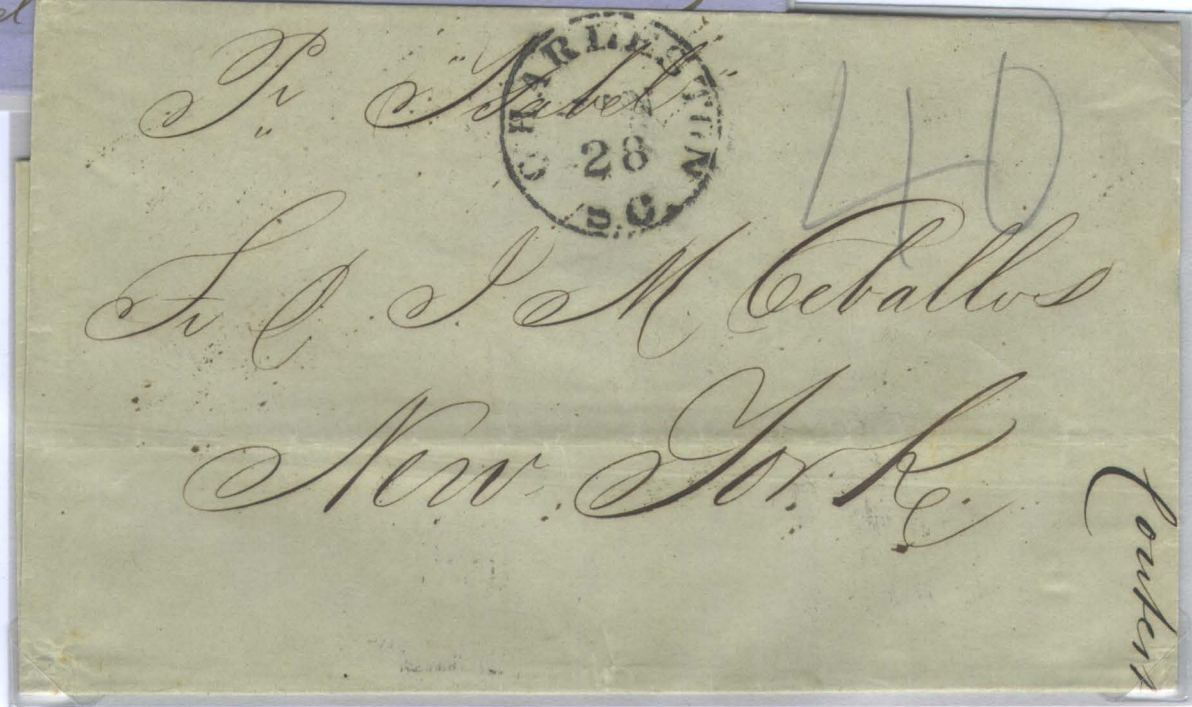 Pr "Isabel"
CHARLESTON
28
S.C.
40
Sr D. J. M. Ceballos
New York